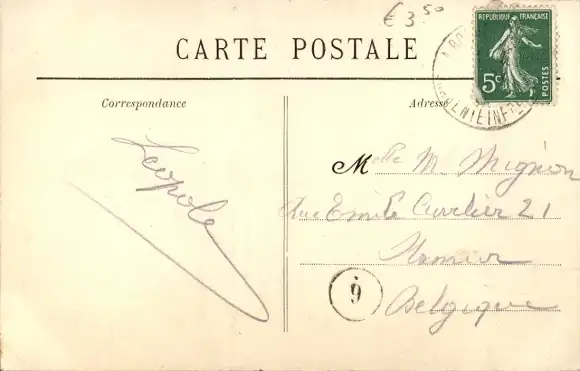 € 3.50
CARTE POSTALE
RÉPUBLIQUE FRANÇAISE
5c
POSTES
Correspondance
Adresse
Léopold
Melle M. Mignon
Rue Emile Cuvelier 21
Namur
Belgique
6